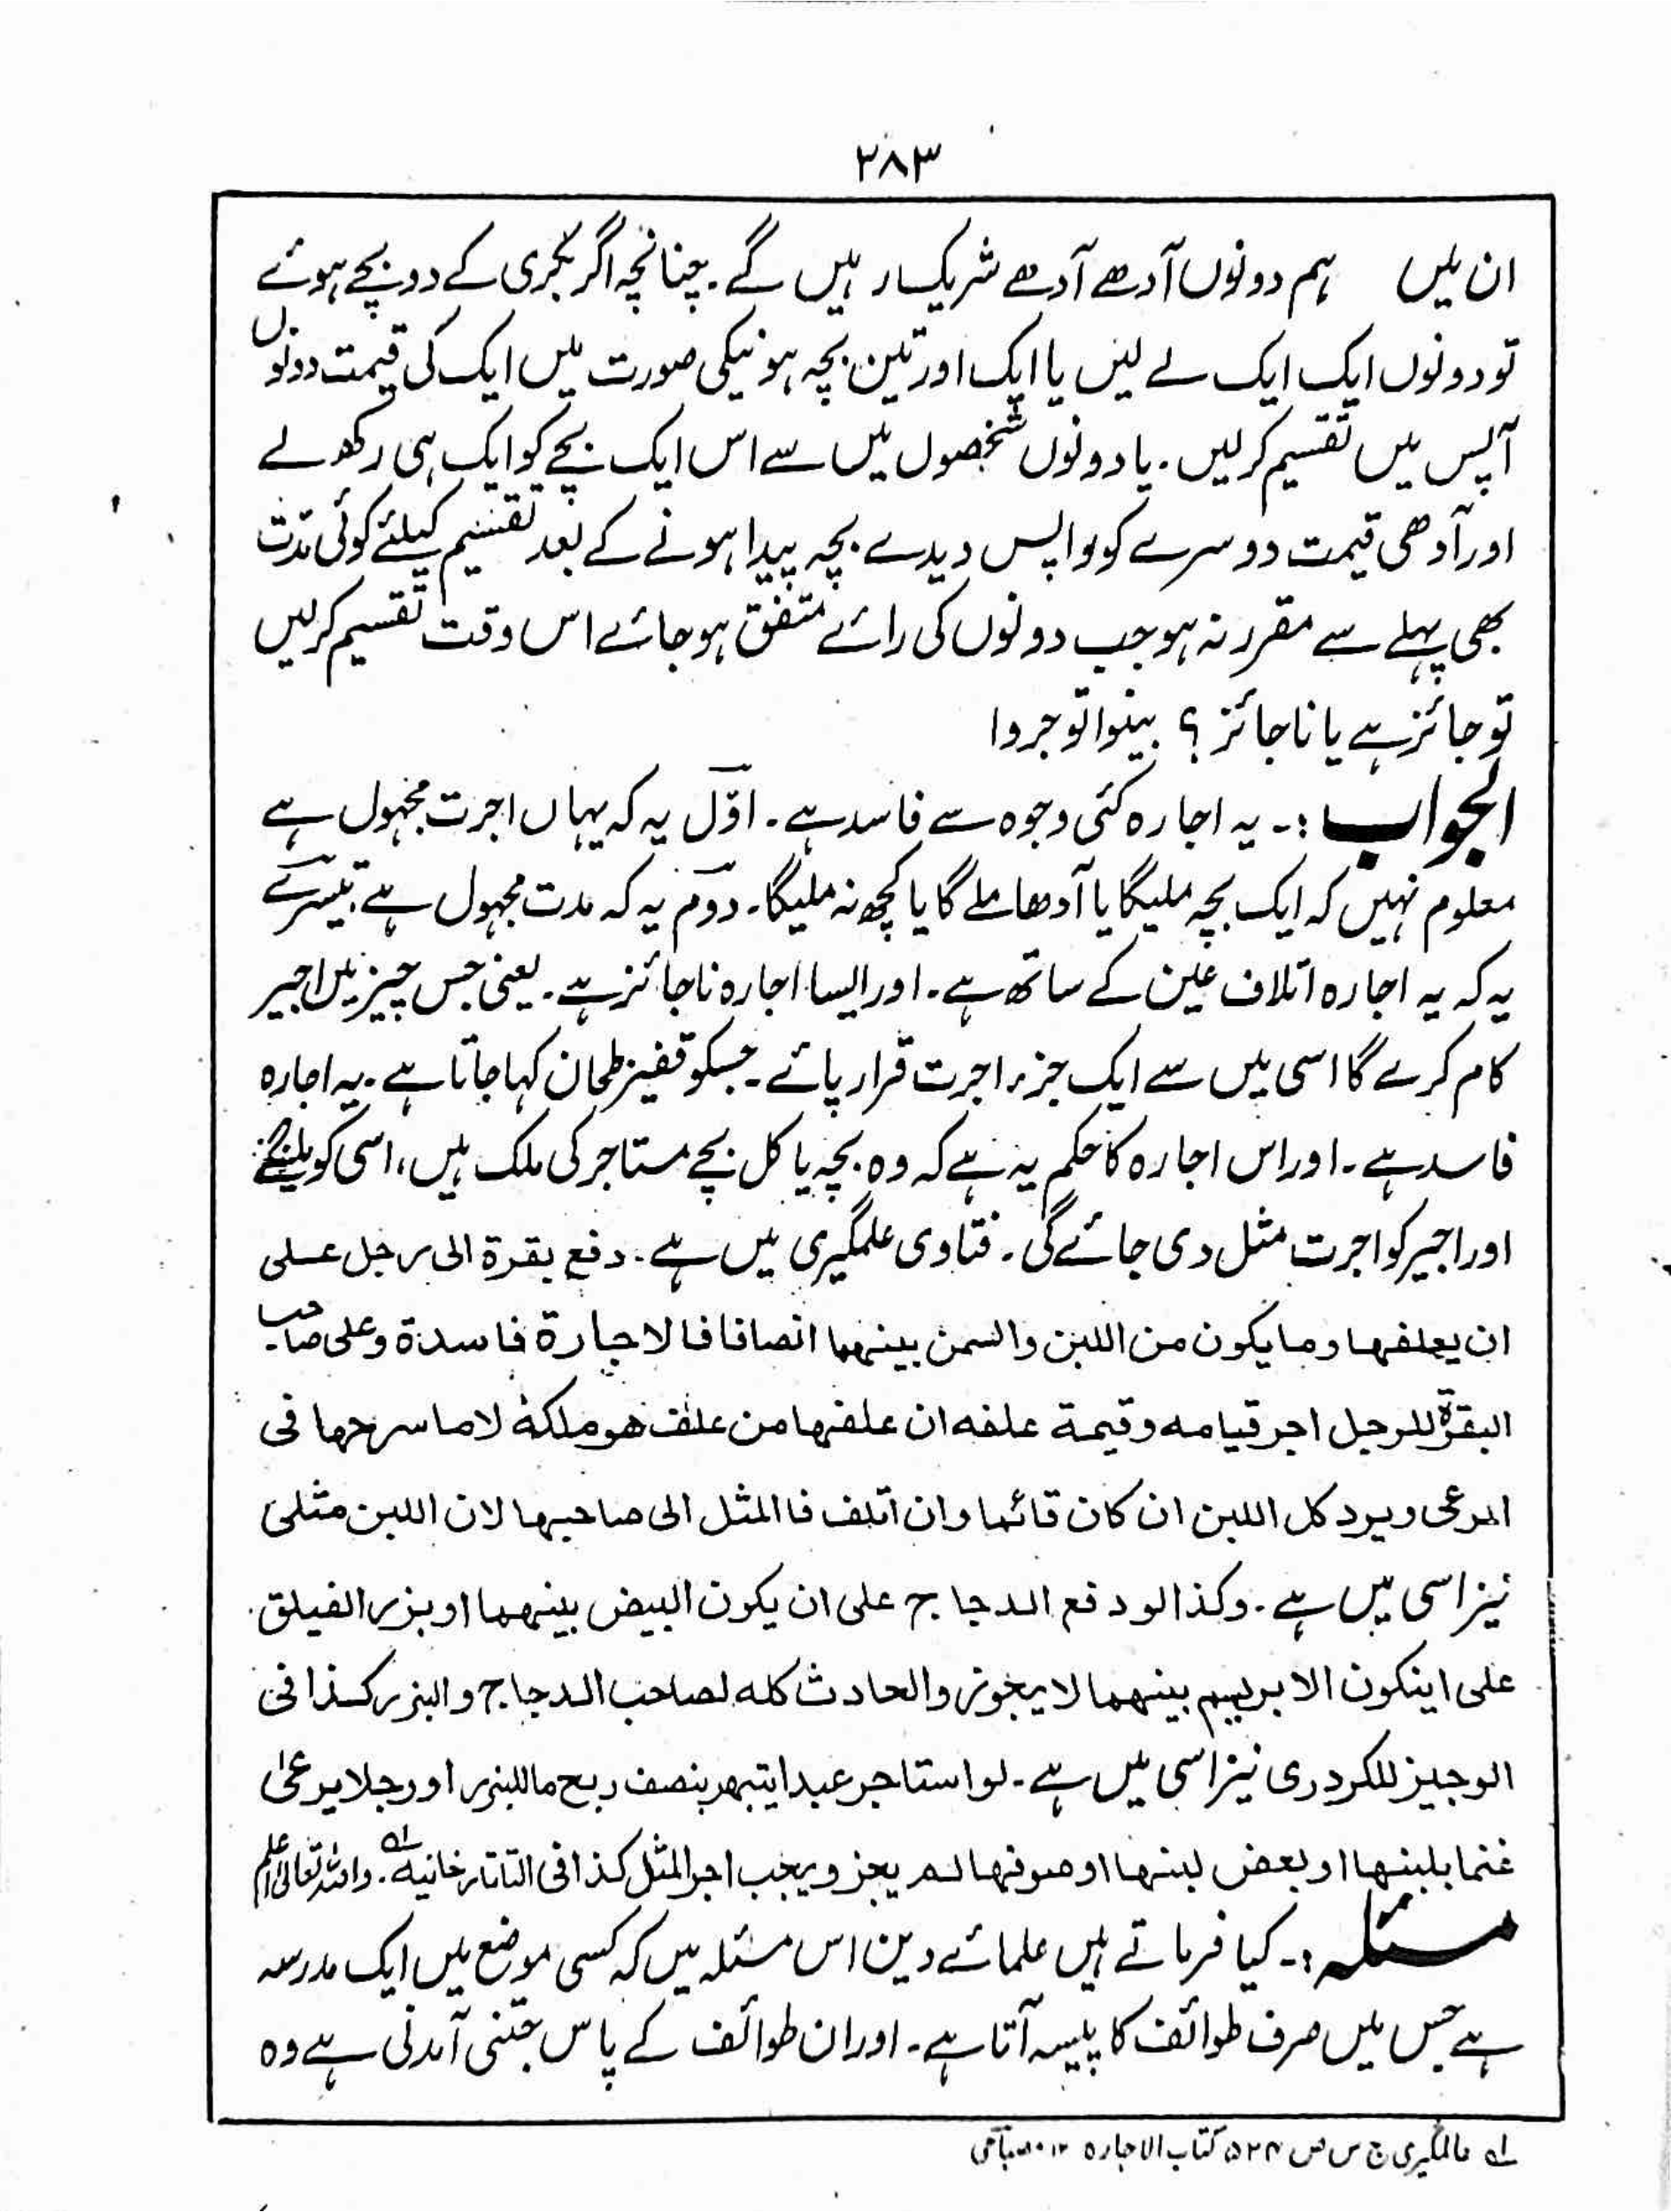 ۲۸۳
ان میں ہم دونوں آدھے آدھے شریک رہیں گے۔ چنانچہ اگر بکری کے دو بچے ہوئے
تو دونوں ایک ایک لے لیں یا ایک اور تین بچہ ہونیکی صورت میں ایک کی قیمت دونوں
آپس میں تقسیم کرلیں۔ یا دونوں شخصوں میں سے اس ایک بچے کو ایک ہی رکھ لے
اور آدھی قیمت دوسرے کو واپس دیدے بچہ پیدا ہونے کے بعد تقسیم کیلئے کوئی مدت
بھی پہلے سے مقرر نہ ہو جب دونوں کی رائے متفق ہوجائے اس وقت تقسیم کرلیں
تو جائز ہے یا ناجائز؟ بینوا توجروا
الجواب :۔ یہ اجارہ کئی وجوہ سے فاسد ہے۔ اوّل یہ کہ یہاں اجرت مجہول ہے
معلوم نہیں کہ ایک بچہ ملیگا یا آدھا ملے گا یا کچھ نہ ملیگا۔ دوم یہ کہ مدت مجہول ہے تیسرے
یہ کہ یہ اجارہ اتلاف عین کے ساتھ ہے۔ اور ایسا اجارہ ناجائز ہے۔ یعنی جس چیز میں اجیر
کام کرے گا اسی میں سے ایک جزء اجرت قرار پائے۔ جسکو قفیز طحان کہا جاتا ہے۔ یہ اجارہ
فاسد ہے۔ اور اس اجارہ کا حکم یہ ہے کہ وہ بچہ یا کل بچے مستاجر کی ملک ہیں، اسی کو ملینگے
اور اجیر کو اجرت مثل دی جائے گی۔ فتاوی علمگیری میں ہے۔ دفع بقرة الی رجل علی
ان یعلفها وما یکون من اللبن والسمن بینهما انصافا فالاجارة فاسدة وعلی صاحب
البقرة للرجل اجر قیامه وقیمة علفه ان علفها من علف هو ملکه لا ما سرحها فی
المرعی ویرد کل اللبن ان کان قائما وان اتلف فاالمثل الی صاحبها لان اللبن مثلی
نیز اسی میں ہے۔ وکذا لو دفع الدجاج علی ان یکون البیض بینهما او بزر الفیلق
علی اینکون الابریسم بینهما لا یجوز والحادث کله لصاحب الدجاج والبزر کذا فی
الوجیز للکردری نیز اسی میں ہے۔ لو استاجر عبدا بنصف ربح ما او رجلا یرعی
غنما بلبنها او بعض لبنها او صوفها لم یجز ویجب اجر المثل کذا فی التاتارخانیه؎۱۔ واللہ تعالی اعلم
مسئلہ :۔ کیا فرماتے ہیں علمائے دین اس مسئلہ میں کہ کسی موضع میں ایک مدرسہ
ہے جس میں صرف طوائف کا پیسہ آتا ہے۔ اور ان طوائف کے پاس جتنی آمدنی ہے وہ
؎۱ عالمگیری ج س ص ۵۲۴ کتاب الاجارہ ۱۲